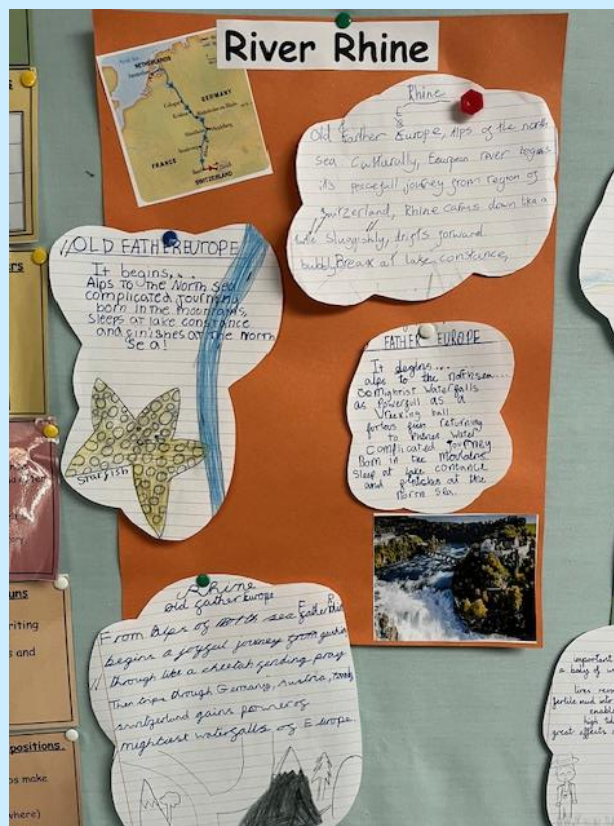 River Rhine
NETHERLANDS
GERMANY
FRANCE
SWITZERLAND
Rhine
Old Farther Europe, Alps of the north
sea Culturally, European river begins
its peacefull journey from region of
Switzerland, Rhine calms down like a
turtle sluggishly, drifts forward.
bubbly Break at lake constance,
OLD FATHER EUROPE
It begins...
Alps to the North sea
complicated journey
born in the mountains,
sleeps at lake constance
and finishes at the North
sea!
Starfish
FATHER EUROPE
It begins...
alps to the northsea....
So mightist waterfalls
as powerfull as a
wrecking ball
returning
to Rhines water
complicated journey
Born in the
sleep at lake contance
and finishes at the
North Sea.
Rhine
old father europe
From Alps of north sea father
begins a joyful journey from
through like a cheetah finding pray
Then trips through Germany, Austria,
Switzerland gains power of
mightiest waterfalls of Europe.
important
a body of
fertile mud
great effects
uns
writing
s and
positions.
ps make
where)